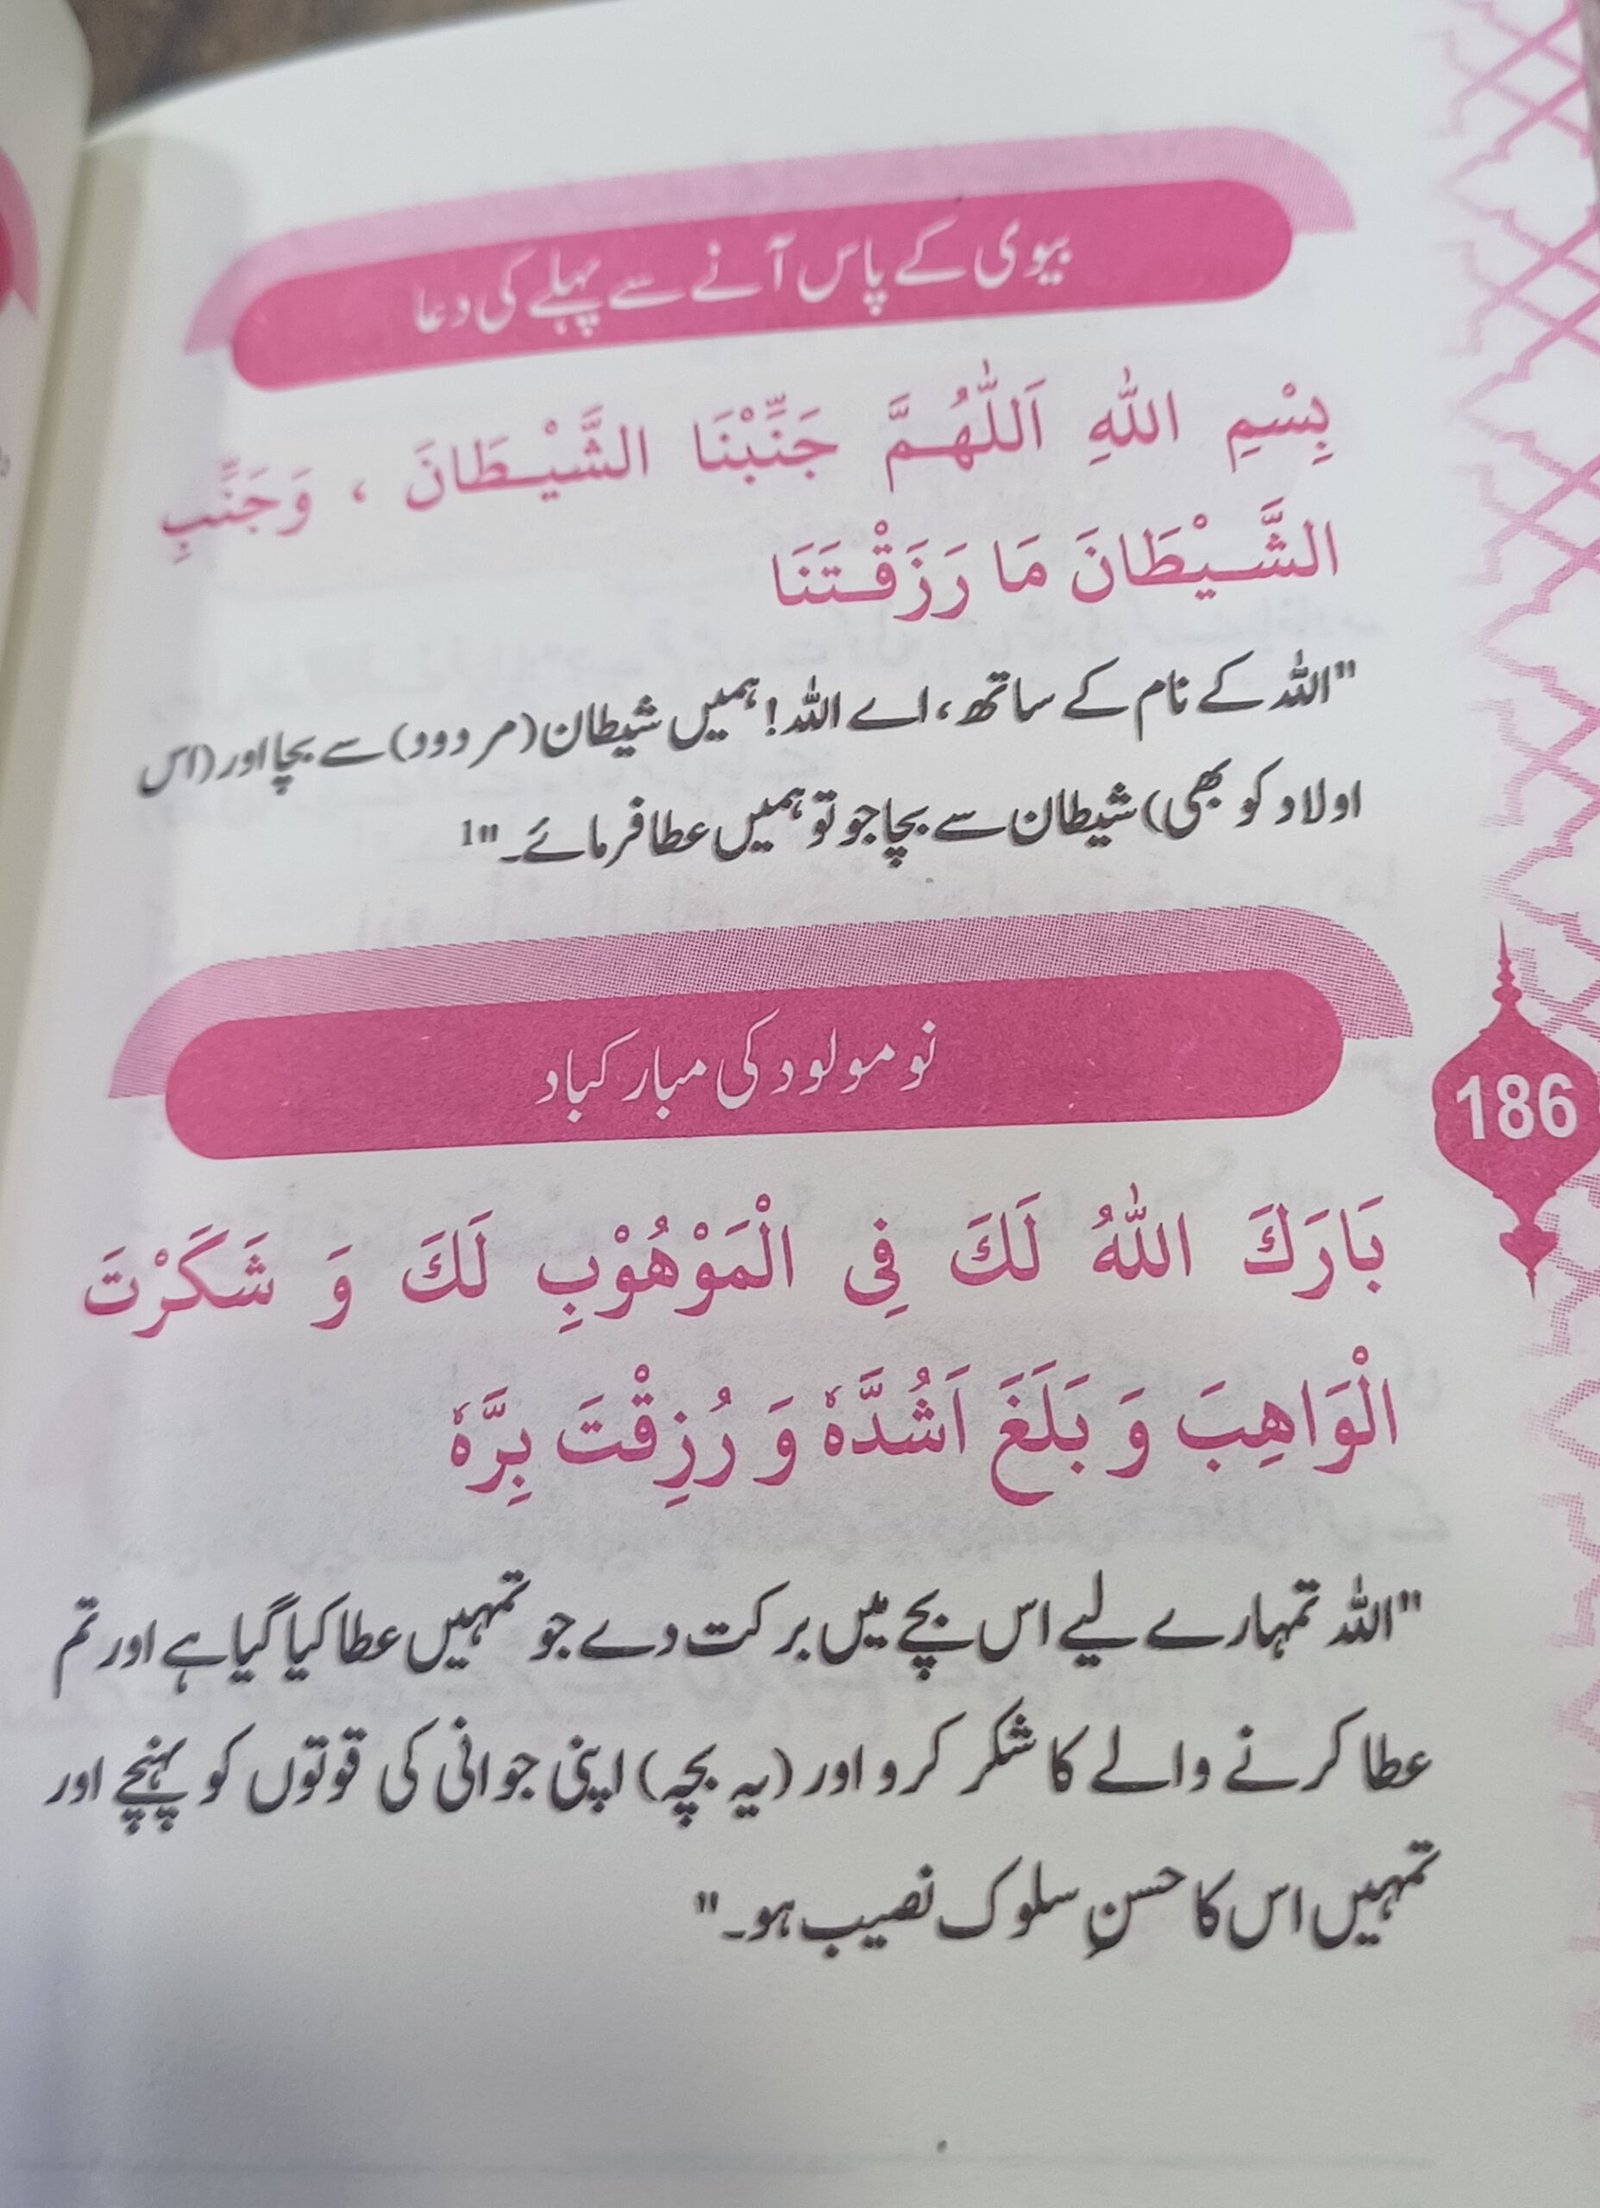 بیوی کے پاس آنے سے پہلے کی دعا
بِسْمِ اللّٰهِ اَللّٰهُمَّ جَنِّبْنَا الشَّيْطَانَ ، وَجَنِّبِ
الشَّيْطَانَ مَا رَزَقْتَنَا
"اللہ کے نام کے ساتھ، اے اللہ! ہمیں شیطان (مردود) سے بچا اور (اس
اولاد کو بھی) شیطان سے بچا جو تو ہمیں عطا فرمائے۔"1
نومولود کی مبارکباد
186
بَارَكَ اللّٰهُ لَكَ فِى الْمَوْهُوْبِ لَكَ وَ شَكَرْتَ
الْوَاهِبَ وَ بَلَغَ اَشُدَّهٗ وَ رُزِقْتَ بِرَّهٗ
"اللہ تمہارے لیے اس بچے میں برکت دے جو تمہیں عطا کیا گیا ہے اور تم
عطا کرنے والے کا شکر کرو اور (یہ بچہ) اپنی جوانی کی قوتوں کو پہنچے اور
تمہیں اس کا حسنِ سلوک نصیب ہو۔"